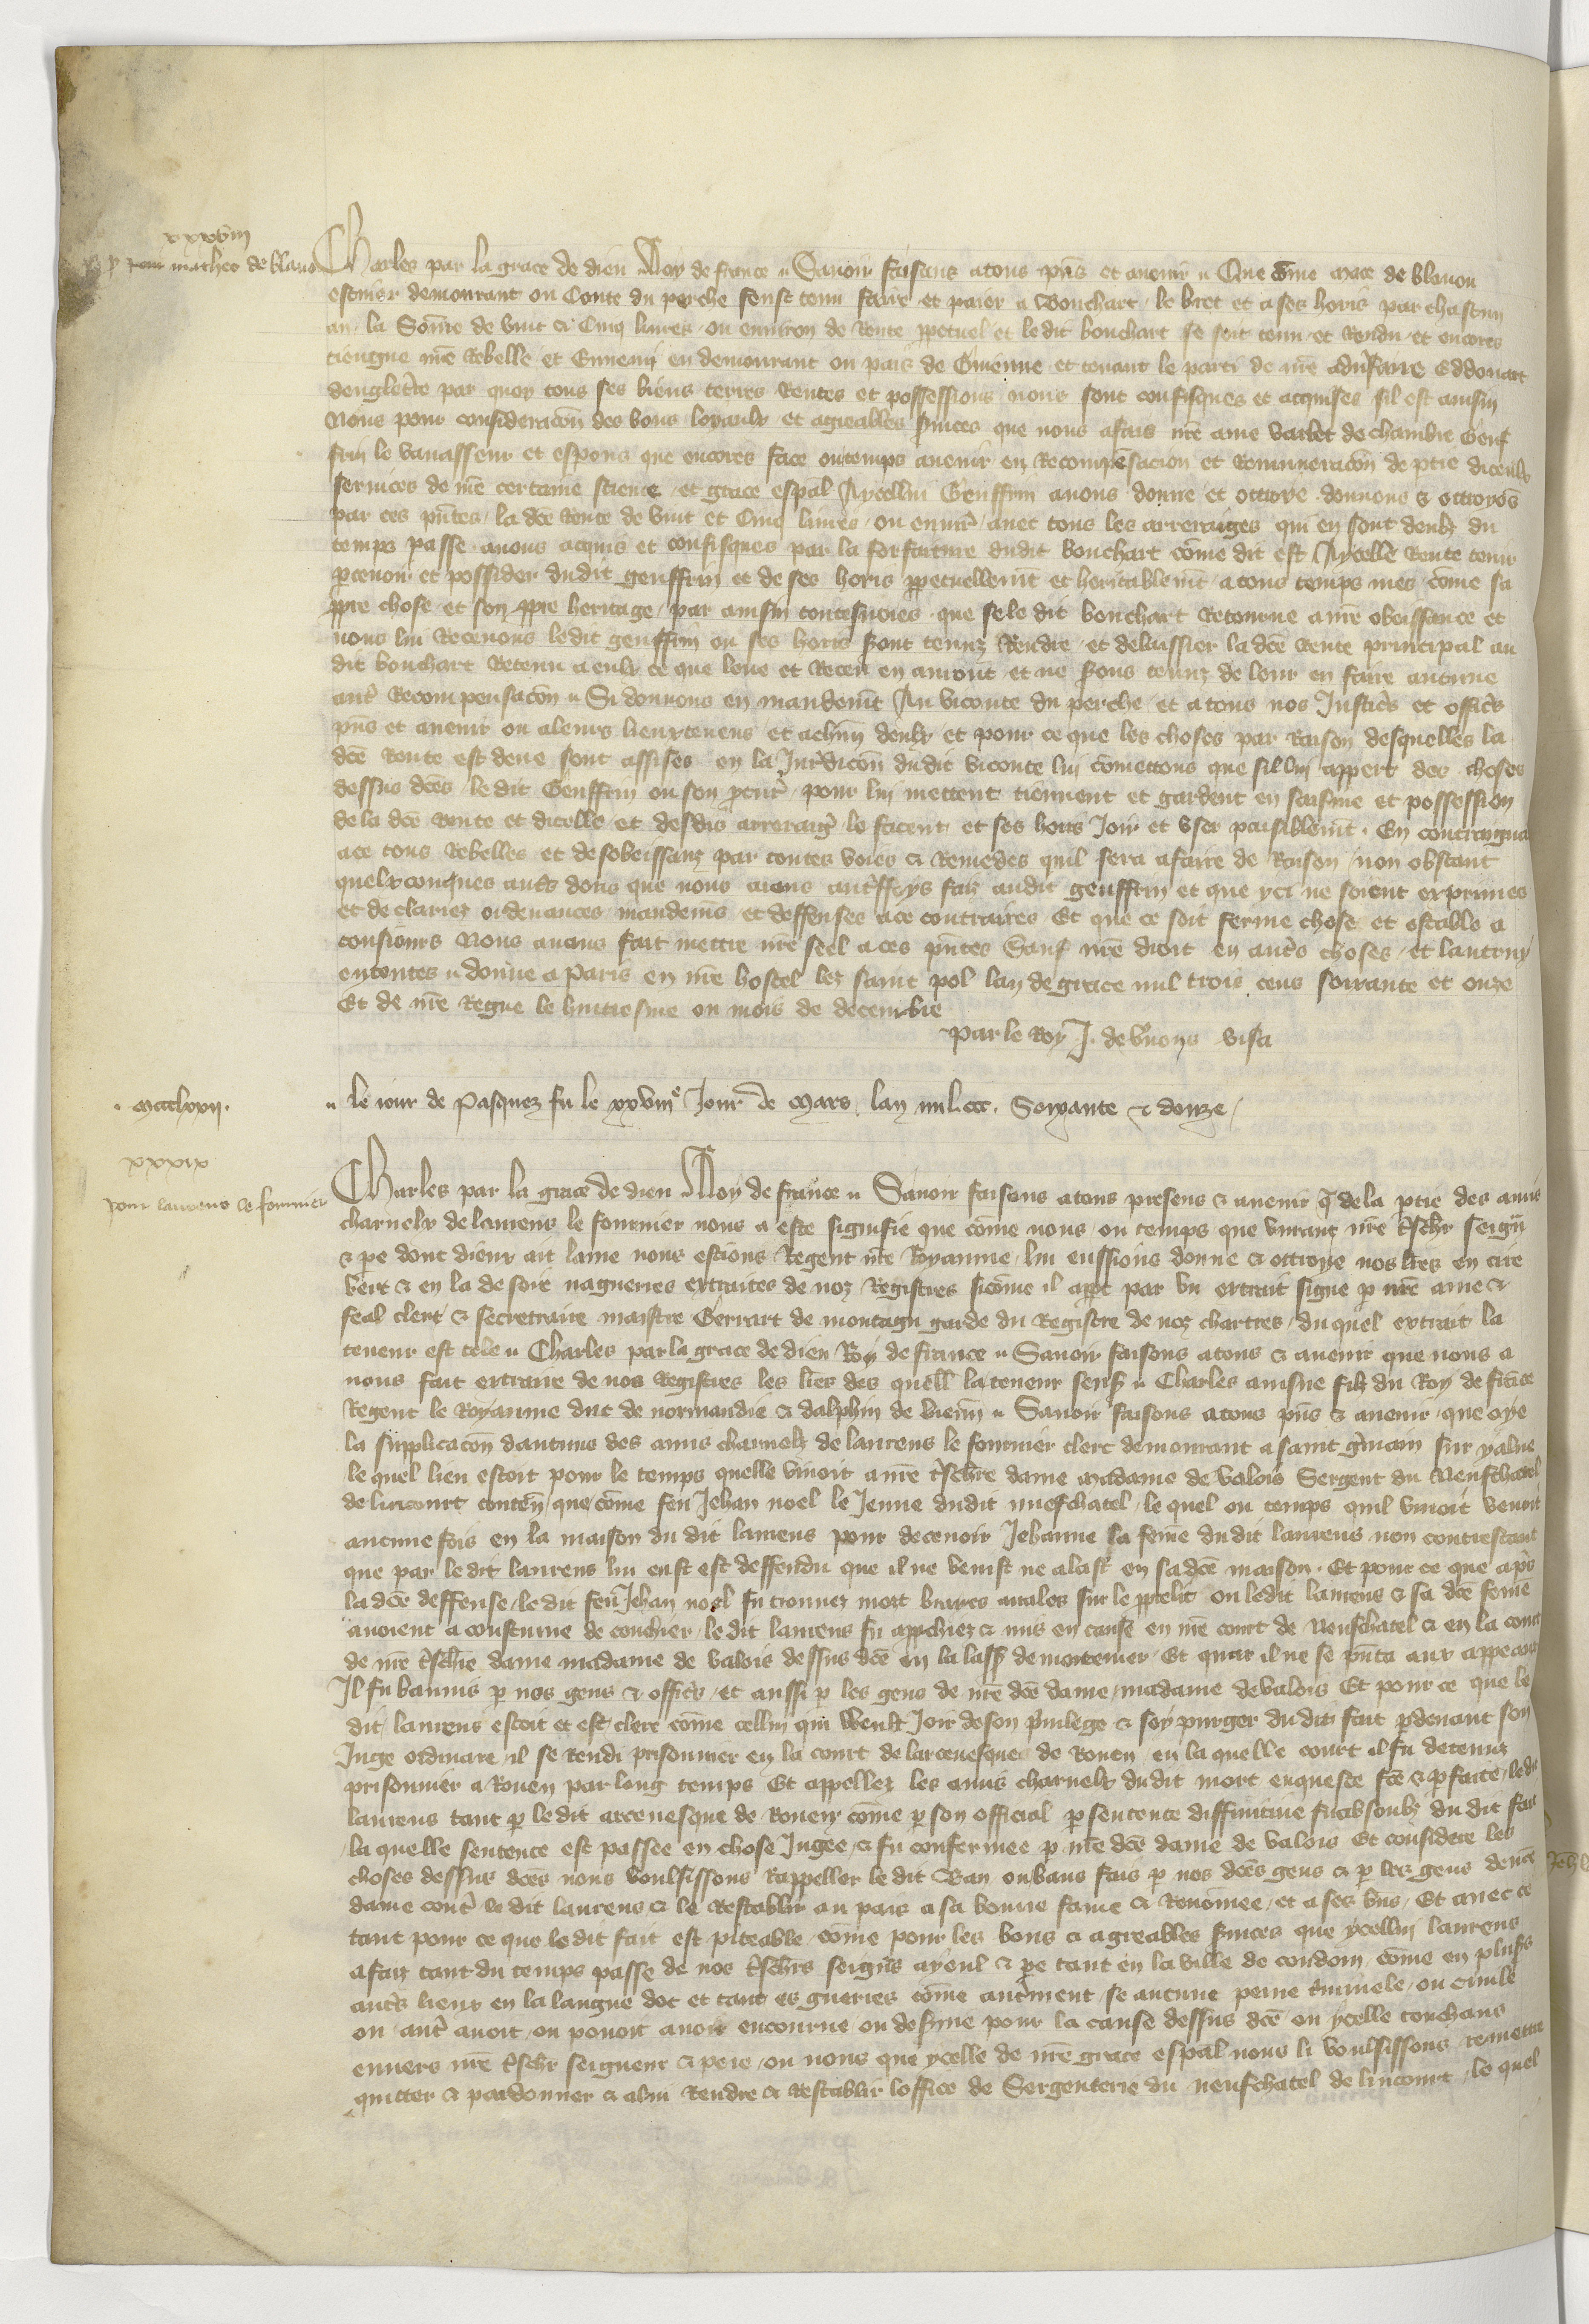 xxxviii
pour macheo de blauo
Charles par la grace de dieu Roy de france Savoir faisons a tous pñs et avenir Que cõme mace de blavou
escuier demourant ou Conte du perche feust tenu faire et paier a Bouchart le bret et a ses hoirs par chascun
an la Sõme de vint et Cinq livres ou environ de Rente ppetuel et le dit bouchart se soit tenu et Rendu et encores
tiengne nr̃e Rebelle et Ennemi en demourant ou pais de Guienne et tenant le parti de nr̃e adv̾saire Eddouart
dengletr̃re par quoy tous ses biens terres Rentes et possessions nous sont confisques et acquises sil est ainsin
Nous pour consideracõn des bons loyaulx et agreables s̾vices que nous a fais nr̃e ame varlet de chambre Geuf
frin le vavasseur et esperons que encores face ou temps avenir en Recompẽsacion et Remuneracõn de ptie diceulx
services de nr̃e certaine science et grace espal Aycellui Geuffrin avons donne et ottroye donnons & ottroyõs
par ces pñtes la dcẽ Rente de vint et Cinq livres ou envir̃ avec tous les arreraiges qui en sont deubz du
temps passe avons acquis et confisques par la forfaiture dudit bouchart cõme dit est Aycelle Rente tenir
pcevoir et possider dudit geuffrin et de ses hoirs ppetuellemt̃ et heritablemt̃ a tous temps mes cõme sa
ppre chose et son ppre heritage par ainsin toutesvoies que se le dit bouchart Retourne a nr̃e obeissance et
nous lui Recevons ledit geuffrin ou ses hoirs s̾ont tenuz Rendre et delaissier la dcẽ Rente principal au
dit bouchart Retenu a eulx ce que leve et Receu en auront et ne s̾ons tenuz de leur en faire aucune
autr̃ Recompensacõn Si donnons en mandemt̃ Au viconte du perche et a tous nos Justic̃s et offic̃s
pñs et avenir ou a leurs lieuxtenens et a chũn deulx et pour ce que les choses par Raison desquelles la
dcẽ Rente est deue sont assises en la Juridicõn dudit viconte lui cõmettons que sil lui appert des choses
dessus dcẽs le dit Geuffrin ou son pcur̃ pour lui mettent tiennent et gardent en saisine et possession
de la dcẽ Rente et dicelle et desdis arreraig̃ le facent et ses hoirs Joir et User paisiblemt̃ En contraigna
a ce tous Rebelles et desobeissans par toutes voies & Remedes quil sera a faire de Raison non obstant
quelxconques autr̃s dons que nous aions autr̃ffoys faiz audit geuffrin et que yci ne soient exprimes
et declariez ordenances mandemẽs et deffenses a ce contraires Et que ce soit ferme chose et estable a
tousiours Nous avons fait mettre nr̃e seel a ces pñtes Sauf nr̃e droit en autr̃s choses et lautruy
en toutes donne a Paris en nr̃e hostel lez saint pol lan de grace mil trois cens soixante et onze
Et de nr̃e Regne le huitiesme ou mois de decembre
Par le Roy J. de v̾nons visa
mccclxxii.
le iour de Pasquez fu le xxviiie Jour de Mars lan mil.ccc. Soixante & douze
xxxix
pour laurens le fournier
Charles par la grace de dieu Roy de france Savoir faisons a tous presens & avenir q̃ de la ptie des amis
charnelx de laurens le fournier nous a este signifie que cõme nous ou temps que vivant nr̃e tr̃schr̃ seign̾
& pe dont dieux ait lame nous estions Regent nr̃e Royaume lui eussions donne & ottroye nos lr̃es en cire
vert & en las de soie nagueres extraites de noz Registres sicõme il appt par un extrait signe p nr̃e ame &
feal clerc & secretaire maistre Gerart de montagu garde du Registre de noz chartres du quel extrait la
teneur est tele Charles par la grace de dieu Roy de france Savoir faisons a tous & avenir que nous a
vons fait extraire de nos Registres les lr̃es des quell̃ la teneur sens̾ Charles ainsne filz du Roy de frãce
Regent le Royaume duc de normandie & dalphin de vienñ Savoir faisons a tous pñs & avenir que oye
la supplicacõn daucuns des amis charnelz de laurens le fournier clerc demourant a saint g̾main sur yalne
le quel lieu estoit pour le temps quelle vivoit a nr̃e tr̃schr̃e dame madame de valois Sergent du Neufchatel
de lincourt conteñ que cõme feu Jehan noel le Jeune dudit nuefchatel le quel ou temps quil vivoit venoit
aucune fois en la maison du dit laurens pour decevoir Jehanne la feme du dit laurens non contrestant
que par le dit laurens lui eust est deffendu que il ne venist ne alast en sa dcẽ maison Et pour ce que apr̃s
la dcẽ deffense le dit feu Jehan noel fu trouvez mort braies avalees sur le pptelit ou ledit laurens & sa dcẽ feme
avoient a coustume de couchier le dit laurens fu approchiez & mis en cause en nr̃e court de Neufchatel & en la court
de nr̃e tr̃schr̃e dame madame de valois dessus dcẽ en la lass̾ de mortemer Et quar il ne se pñta aux appeaux
Il fu bannis p nos gens & offic̃s et aussi p les gens de nr̃e dcẽ dame madame de valois Et pour ce que le
dit laurens estoit et est clerc cõme cellui qui veult Joir de son p̾vilege & soy purger dudit fait pdevant son
Juge ordinaire il se Rendi prisonnier en la court de larcevesques de Rouen en la quelle court il fu detenus
prisonnier a Rouen par long temps Et appellez les amis charnelx du dit mort enqueste fcẽ & pfaicte le dit
laurens tant p le dit arcevesque de Rouen cõme p son official p sentence diffinitive fu absoulz du dit fait
la quelle sentence est passee en chose Jugee & fu confermee p nr̃e dcẽ dame de valois Et considere les
choses dessus dcẽs nous voulsissons Rappeller le dit Ban ou bans fais p nos dcẽs gens & p les gens de nr̃e
dame contr̃ le dit laurens & le Restablir au pais a sa bonne fame & Renõmee et a ses biẽs Et avec ce
tant pour ce que le dit fait est piteable cõme pour les bons & agreables s̾vices que ycellui laurens
a faiz tant du temps passe de nos tr̃schr̃s seigñs ayeul & pe tant en la ville de condom cõme en plus̾s
autr̃s lieux en la langue doc et tant es guerres cõme autr̃ment se aucune peine c̾minele ou civile
ou autr̃ avoit ou povoit avoir encourue ou desservie pour la cause dessus dcẽ ou ycelle touchans
envers nr̃e tr̃schr̃ seigneur & pere ou nous que ycelle de nr̃e grace espal nous li voulsissons remettre
quitter & pardonner & a lui Rendre & Restablir loffice de Sergenterie du neufchatel de lincourt le quel